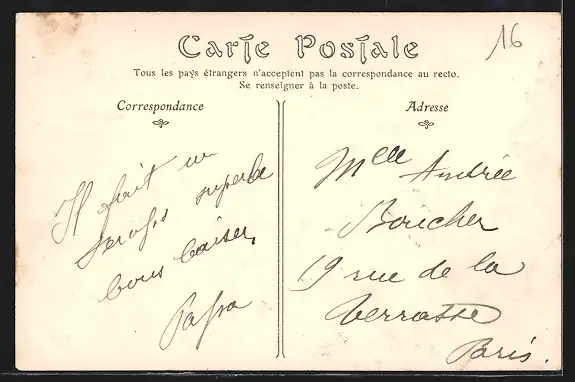 16
Carte Postale
Tous les pays étrangers n'acceptent pas la correspondance au recto.
Se renseigner à la poste.
Correspondance
Il fait un
temps superbe
bons baisers,
Papa
Adresse
Mlle Andrée
Boucher
19 rue de la
Terrasse
Paris.